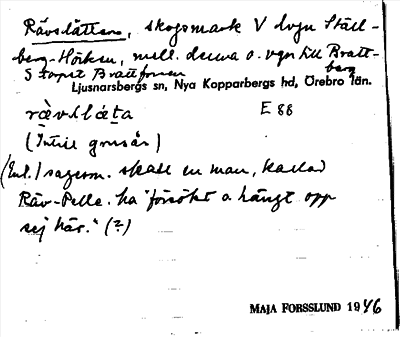 Rävslätten, skogsmark V lvgn Ställ-
berg-Hörken, mell. denna o. vgn till Bratt-
berg
S torpet Brattforsen
Ljusnarsbergs sn, Nya Kopparbergs hd, Örebro län.
E 88
(Intill gården)
(Enl.) sägen. skall en man, kallad
Räv-Pelle. ha "försökt o. hängt opp
sej här." (?)
MAJA FORSSLUND 1946